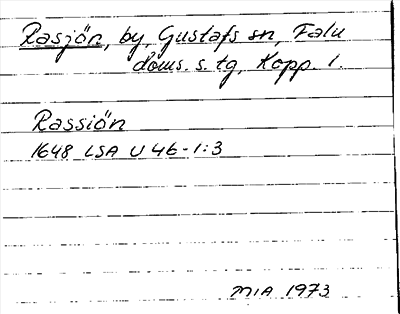 Rasjön, by, Gustafs sn, Falu
doms. s. tg, Kopp. l.
Rassiön
1648 LSA U 4b-1:3
MIA 1973